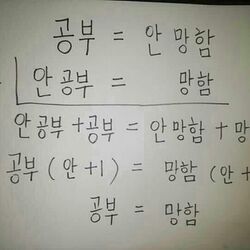 공부 = 안 망함
안 공부 = 망함
안 공부 + 공부 = 안 망함 + 망
공부 (안 + 1) = 망함 (안 +
공부 = 망함